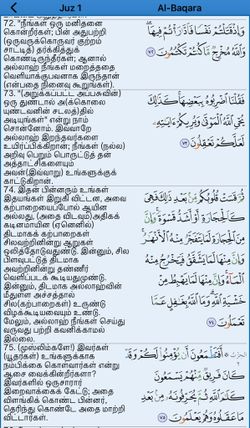 Juz 1
Al-Baqara
72. "நீங்கள் ஒரு மனிதனை
கொன்றீர்கள்; பின் அதுபற்றி
(ஒருவருக்கொருவர் குற்றம்
சாட்டித்) தர்க்கித்துக்
கொண்டிருந்தீர்கள்; ஆனால்
அல்லாஹ் நீங்கள் மறைத்ததை
வெளியாக்குபவனாக இருந்தான்
(என்பதை நினைவு கூறுங்கள்).
وَإِذْ قَتَلْتُمْ نَفْسًا فَادَّارَأْتُمْ فِيهَا
وَاللَّهُ مُخْرِجٌ مَّا كُنتُمْ تَكْتُمُونَ ٧٢
73. "(அறுக்கப்பட்ட அப்பசுவின்)
ஒரு துண்டால் அ(க்கொலை
யுண்டவனின் சடலத்)தில்
அடியுங்கள்" என்று நாம்
சொன்னோம். இவ்வாறே
அல்லாஹ் இறந்தவர்களை
உயிர்ப்பிக்கிறான்; நீங்கள் (நல்ல)
அறிவு பெறும் பொருட்டுத் தன்
அத்தாட்சிகளையும்
அவன்(இவ்வாறு) உங்களுக்குக்
காட்டுகிறான்.
فَقُلْنَا اضْرِبُوهُ بِبَعْضِهَا كَذَٰلِكَ
يُحْيِ اللَّهُ الْمَوْتَىٰ وَيُرِيكُمْ ءَايَٰتِهِ
لَعَلَّكُمْ تَعْقِلُونَ ٧٣
74. இதன் பின்னரும் உங்கள்
இதயங்கள் இறுகி விட்டன, அவை
கற்பாறையைப்போல் ஆயின
அல்லது, (அதை விடவும்)அதிகக்
கடினமாயின (ஏனெனில்)
திடமாகக் கற்பாறைகள்
சிலவற்றினின்று ஆறுகள்
ஒலித்தோடுவதுண்டு. இன்னும், சில
பிளவுபட்டுத் திடமாக
அவற்றினின்று தண்ணீர்
வெளிப்படக் கூடியதுமுண்டு.
இன்னும், திடமாக அல்லாஹ்வின்
மீதுள்ள அச்சத்தால்
சில(கற்பாறைகள்) உருண்டு
விழக்கூடியவையும் உண்டு.
மேலும், அல்லாஹ் நீங்கள் செய்து
வருவது பற்றி கவனிக்காமல்
இல்லை.
ثُمَّ قَسَتْ قُلُوبُكُم مِّن بَعْدِ ذَٰلِكَ فَهِيَ
كَالْحِجَارَةِ أَوْ أَشَدُّ قَسْوَةً وَإِنَّ
مِنَ الْحِجَارَةِ لَمَا يَتَفَجَّرُ مِنْهُ الْأَنْهَٰرُ
وَإِنَّ مِنْهَا لَمَا يَشَّقَّقُ فَيَخْرُجُ مِنْهُ
الْمَاءُ وَإِنَّ مِنْهَا لَمَا يَهْبِطُ مِنْ
خَشْيَةِ اللَّهِ وَمَا اللَّهُ بِغَٰفِلٍ عَمَّا
تَعْمَلُونَ ٧٤
75. (முஸ்லிம்களே!) இவர்கள்
(யூதர்கள்) உங்களுக்காக
நம்பிக்கை கொள்வார்கள் என்று
ஆசை வைக்கின்றீர்களா?
இவர்களில் ஒருசாரார்
இறைவாக்கைக் கேட்டு; அதை
விளங்கிக் கொண்ட பின்னர்,
தெரிந்து கொண்டே அதை மாற்றி
விட்டார்கள்.
أَفَتَطْمَعُونَ أَن يُؤْمِنُوا لَكُمْ وَقَدْ
كَانَ فَرِيقٌ مِّنْهُمْ يَسْمَعُونَ
كَلَٰمَ اللَّهِ ثُمَّ يُحَرِّفُونَهُ مِن بَعْدِ
مَا عَقَلُوهُ وَهُمْ يَعْلَمُونَ ٧٥